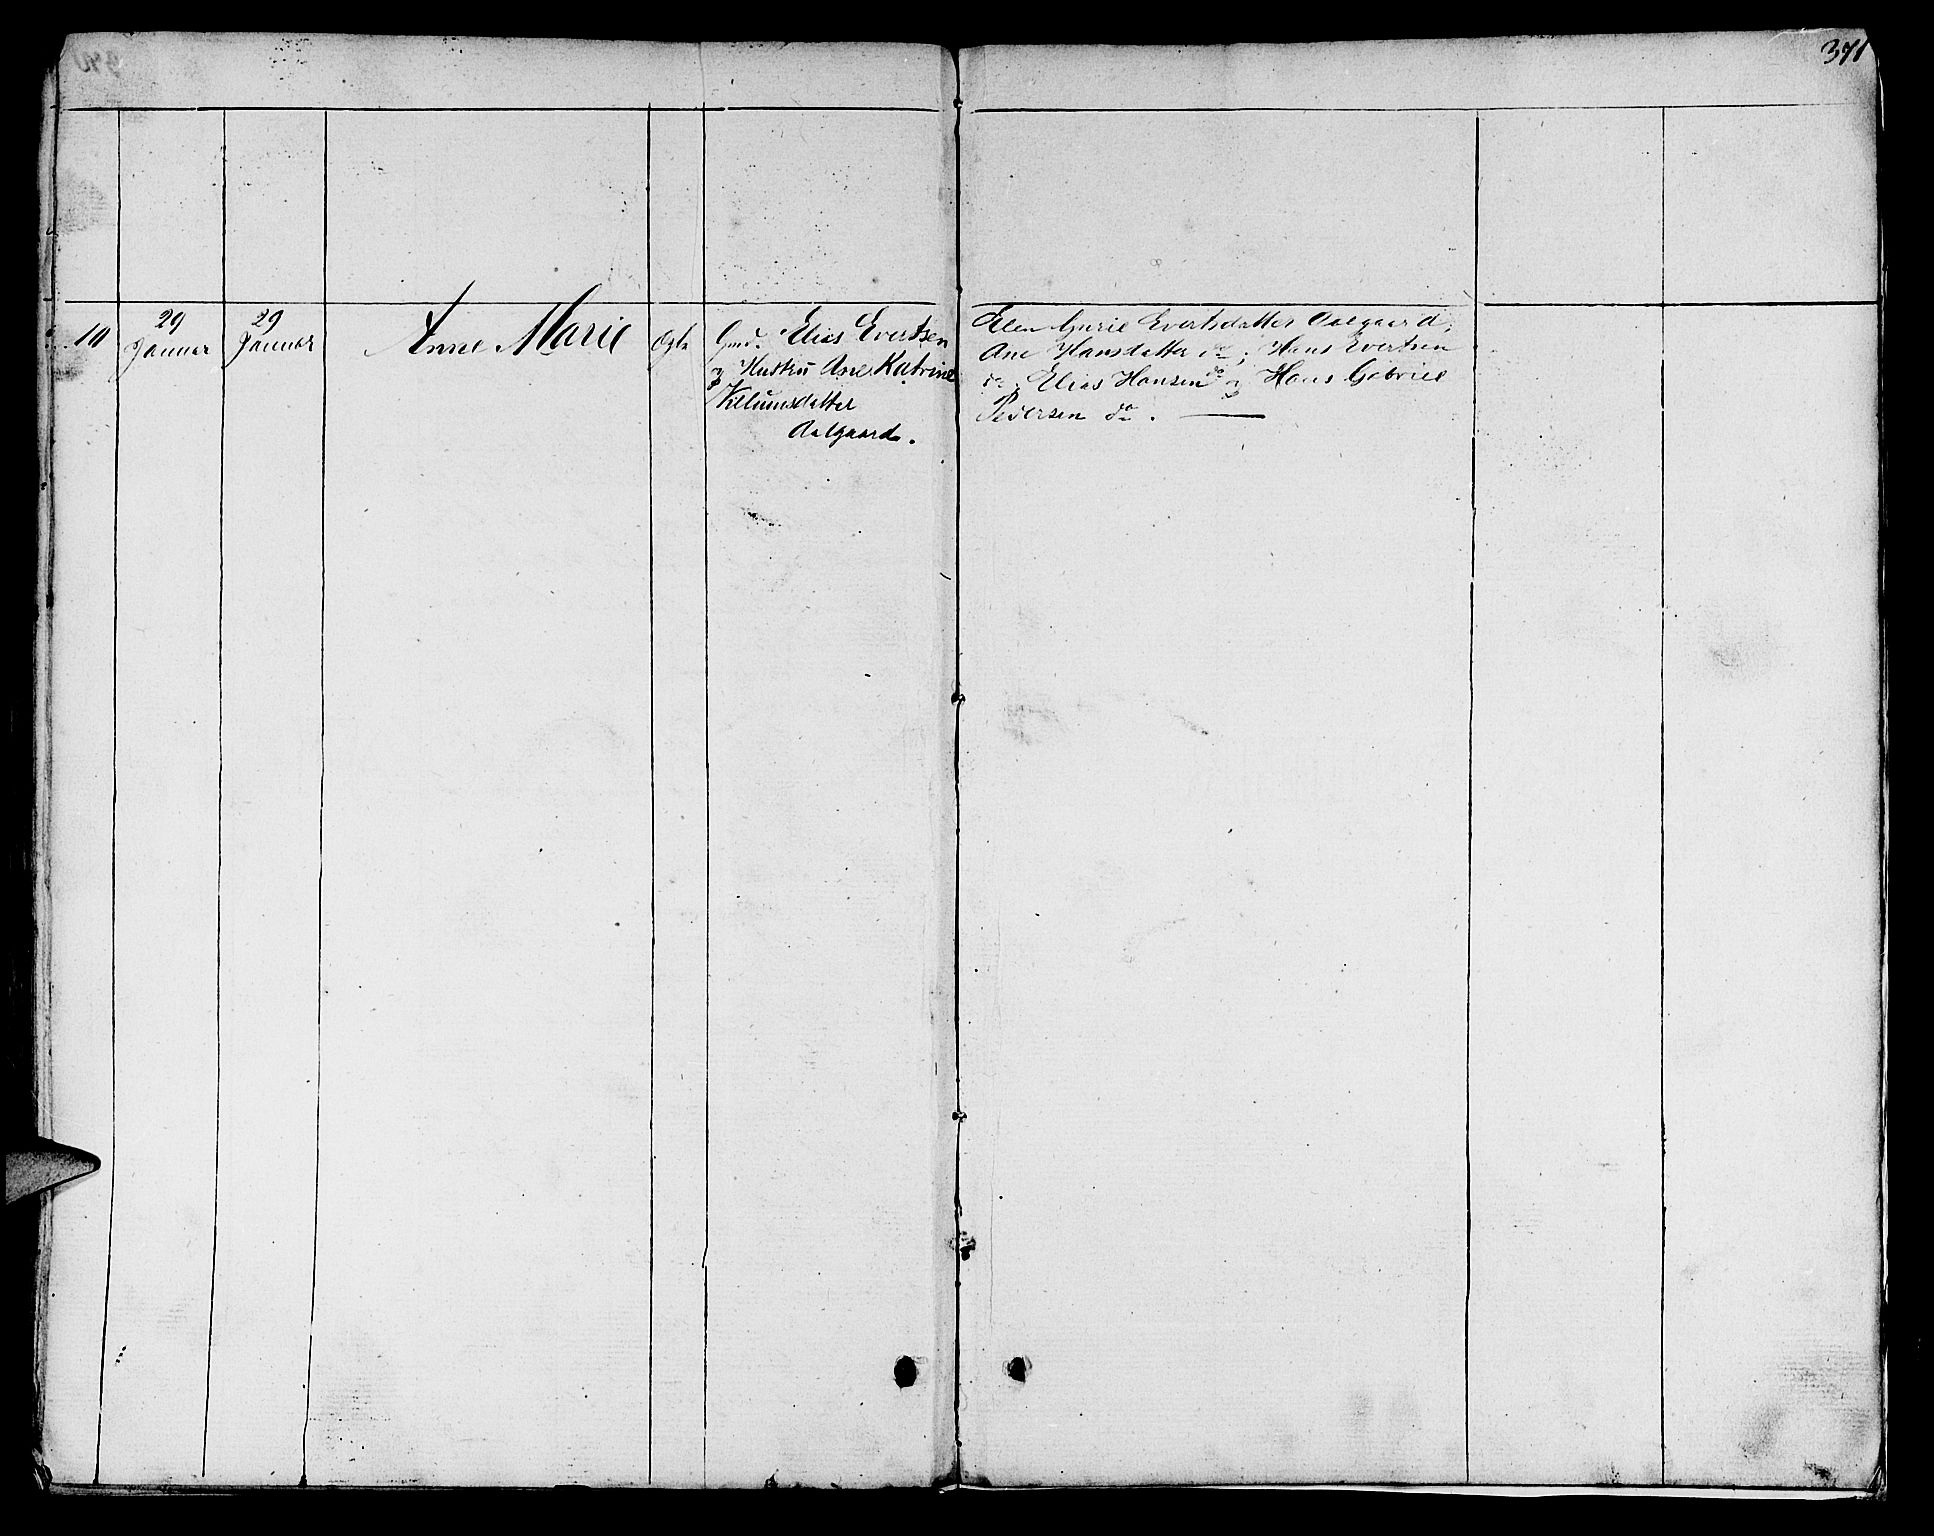 371
10
29
Januar
29
Januar
Anne Marie
Ægte
Gmd. Elias Evertsen
og Hustru Ane Katrine
Villumsdatter
Aalgaard.
Elen Gurie Evertsdatter Aalgaard,
Ane Hansdatter do; Hans Evertsen
do, Elias Hansen do og Hans Gabriel
Pedersen do. —